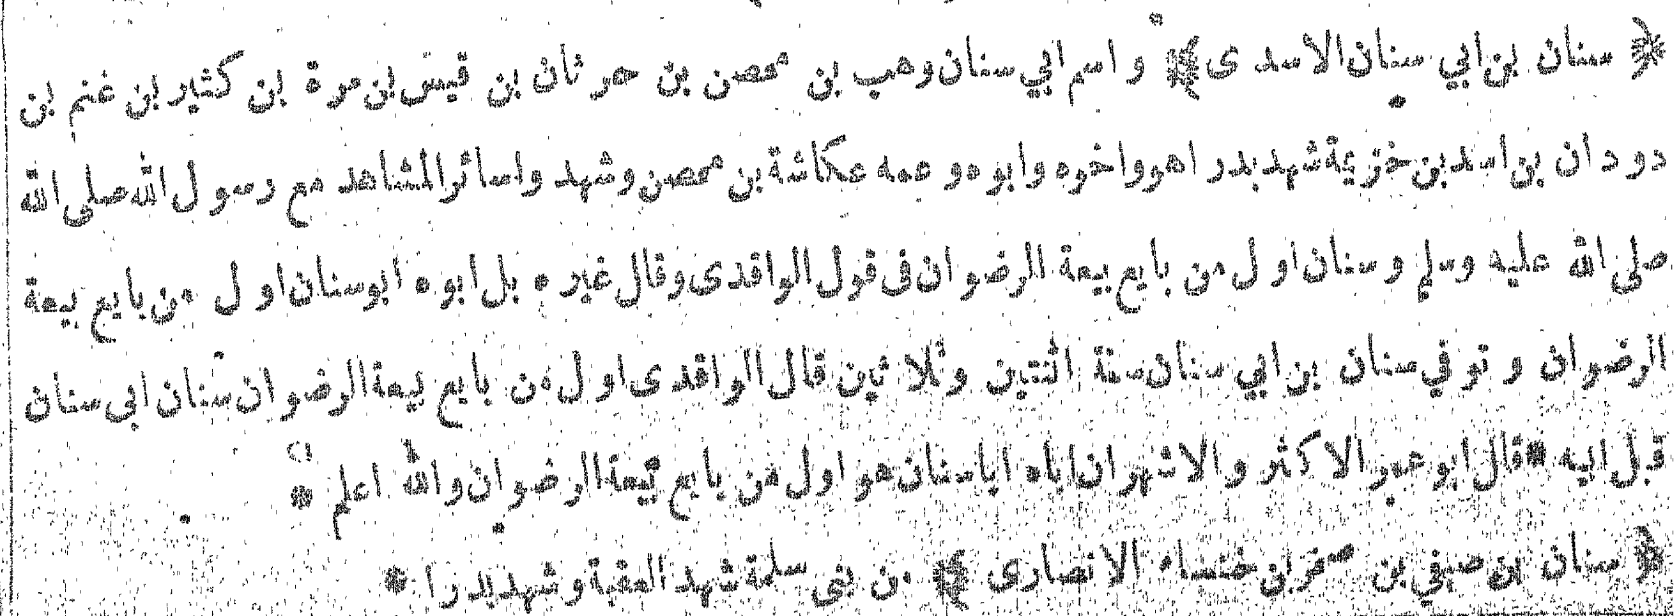 ﴿ سنان بن ابي سنان الاسدى ﴾ واسم ابي سنان وهب بن محصن بن حرثان بن قيس بن مرة بن كثير بن غنم بن
دودان بن اسد بن خزيمة شهد بدرا هو واخوه وابوه وعمه عكاشة بن محصن وشهد واسائر المشاهد مع رسول الله صلى الله
صلى الله عليه وسلم وسنان اول من بايع بيعة الرضوان فى قول الواقدى وقال غيره بل ابوه ابوسنان اول من بايع بيعة
الرضوان وتوفي سنان بن ابي سنان سنة اثنتين وثلاثين قال الواقدى اول من بايع بيعة الرضوان سنان ابى سنان
قبل ابيه * قال ابوعمر الاكثر والاشهر ان اباه اباسنان هو اول من بايع بيعة الرضوان والله اعلم *
﴿ سنان بن صيفي بن صخر بن خنساء الانصارى ﴾ من بنى سلمة شهد العقبة وشهد بدرا *